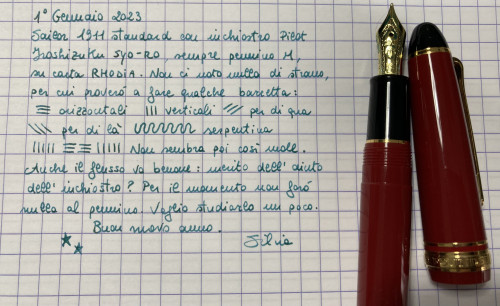 1° Gennaio 2023
Sailor 1911 standard con inchiostro Pilot
Iroshizuku SYO-RO, sempre pennino M,
su carta RHODIA. Non ci noto nulla di strano,
per cui proverò a fare qualche barretta:
orizzontali verticali per di qua
per di là serpentina
Non sembra poi così male.
Anche il flusso va benone: merito dell'aiuto
dell'inchiostro? Per il momento non farò
nulla al pennino. Voglio studiarlo un poco.
Buon nuovo anno.
Silvia